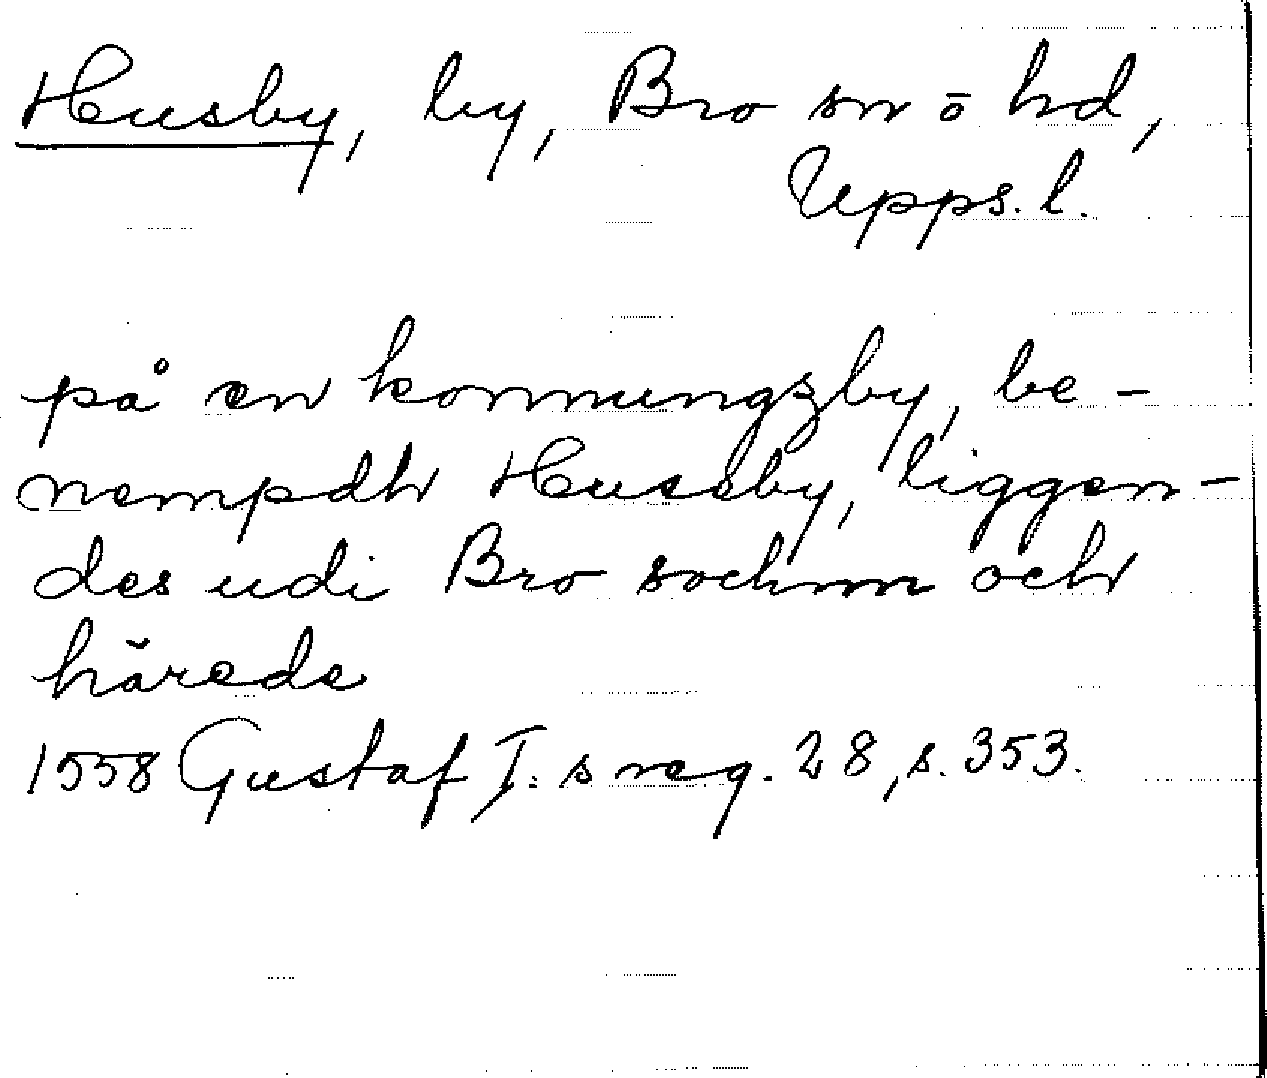 Husby, by, Bro sn o hd,
Upps. l.
på en konnungzby, be-
nempdh Huseby, liggen-
des udi Bro sochnn och
härede
1558 Gustaf I:s reg. 28, s. 353.